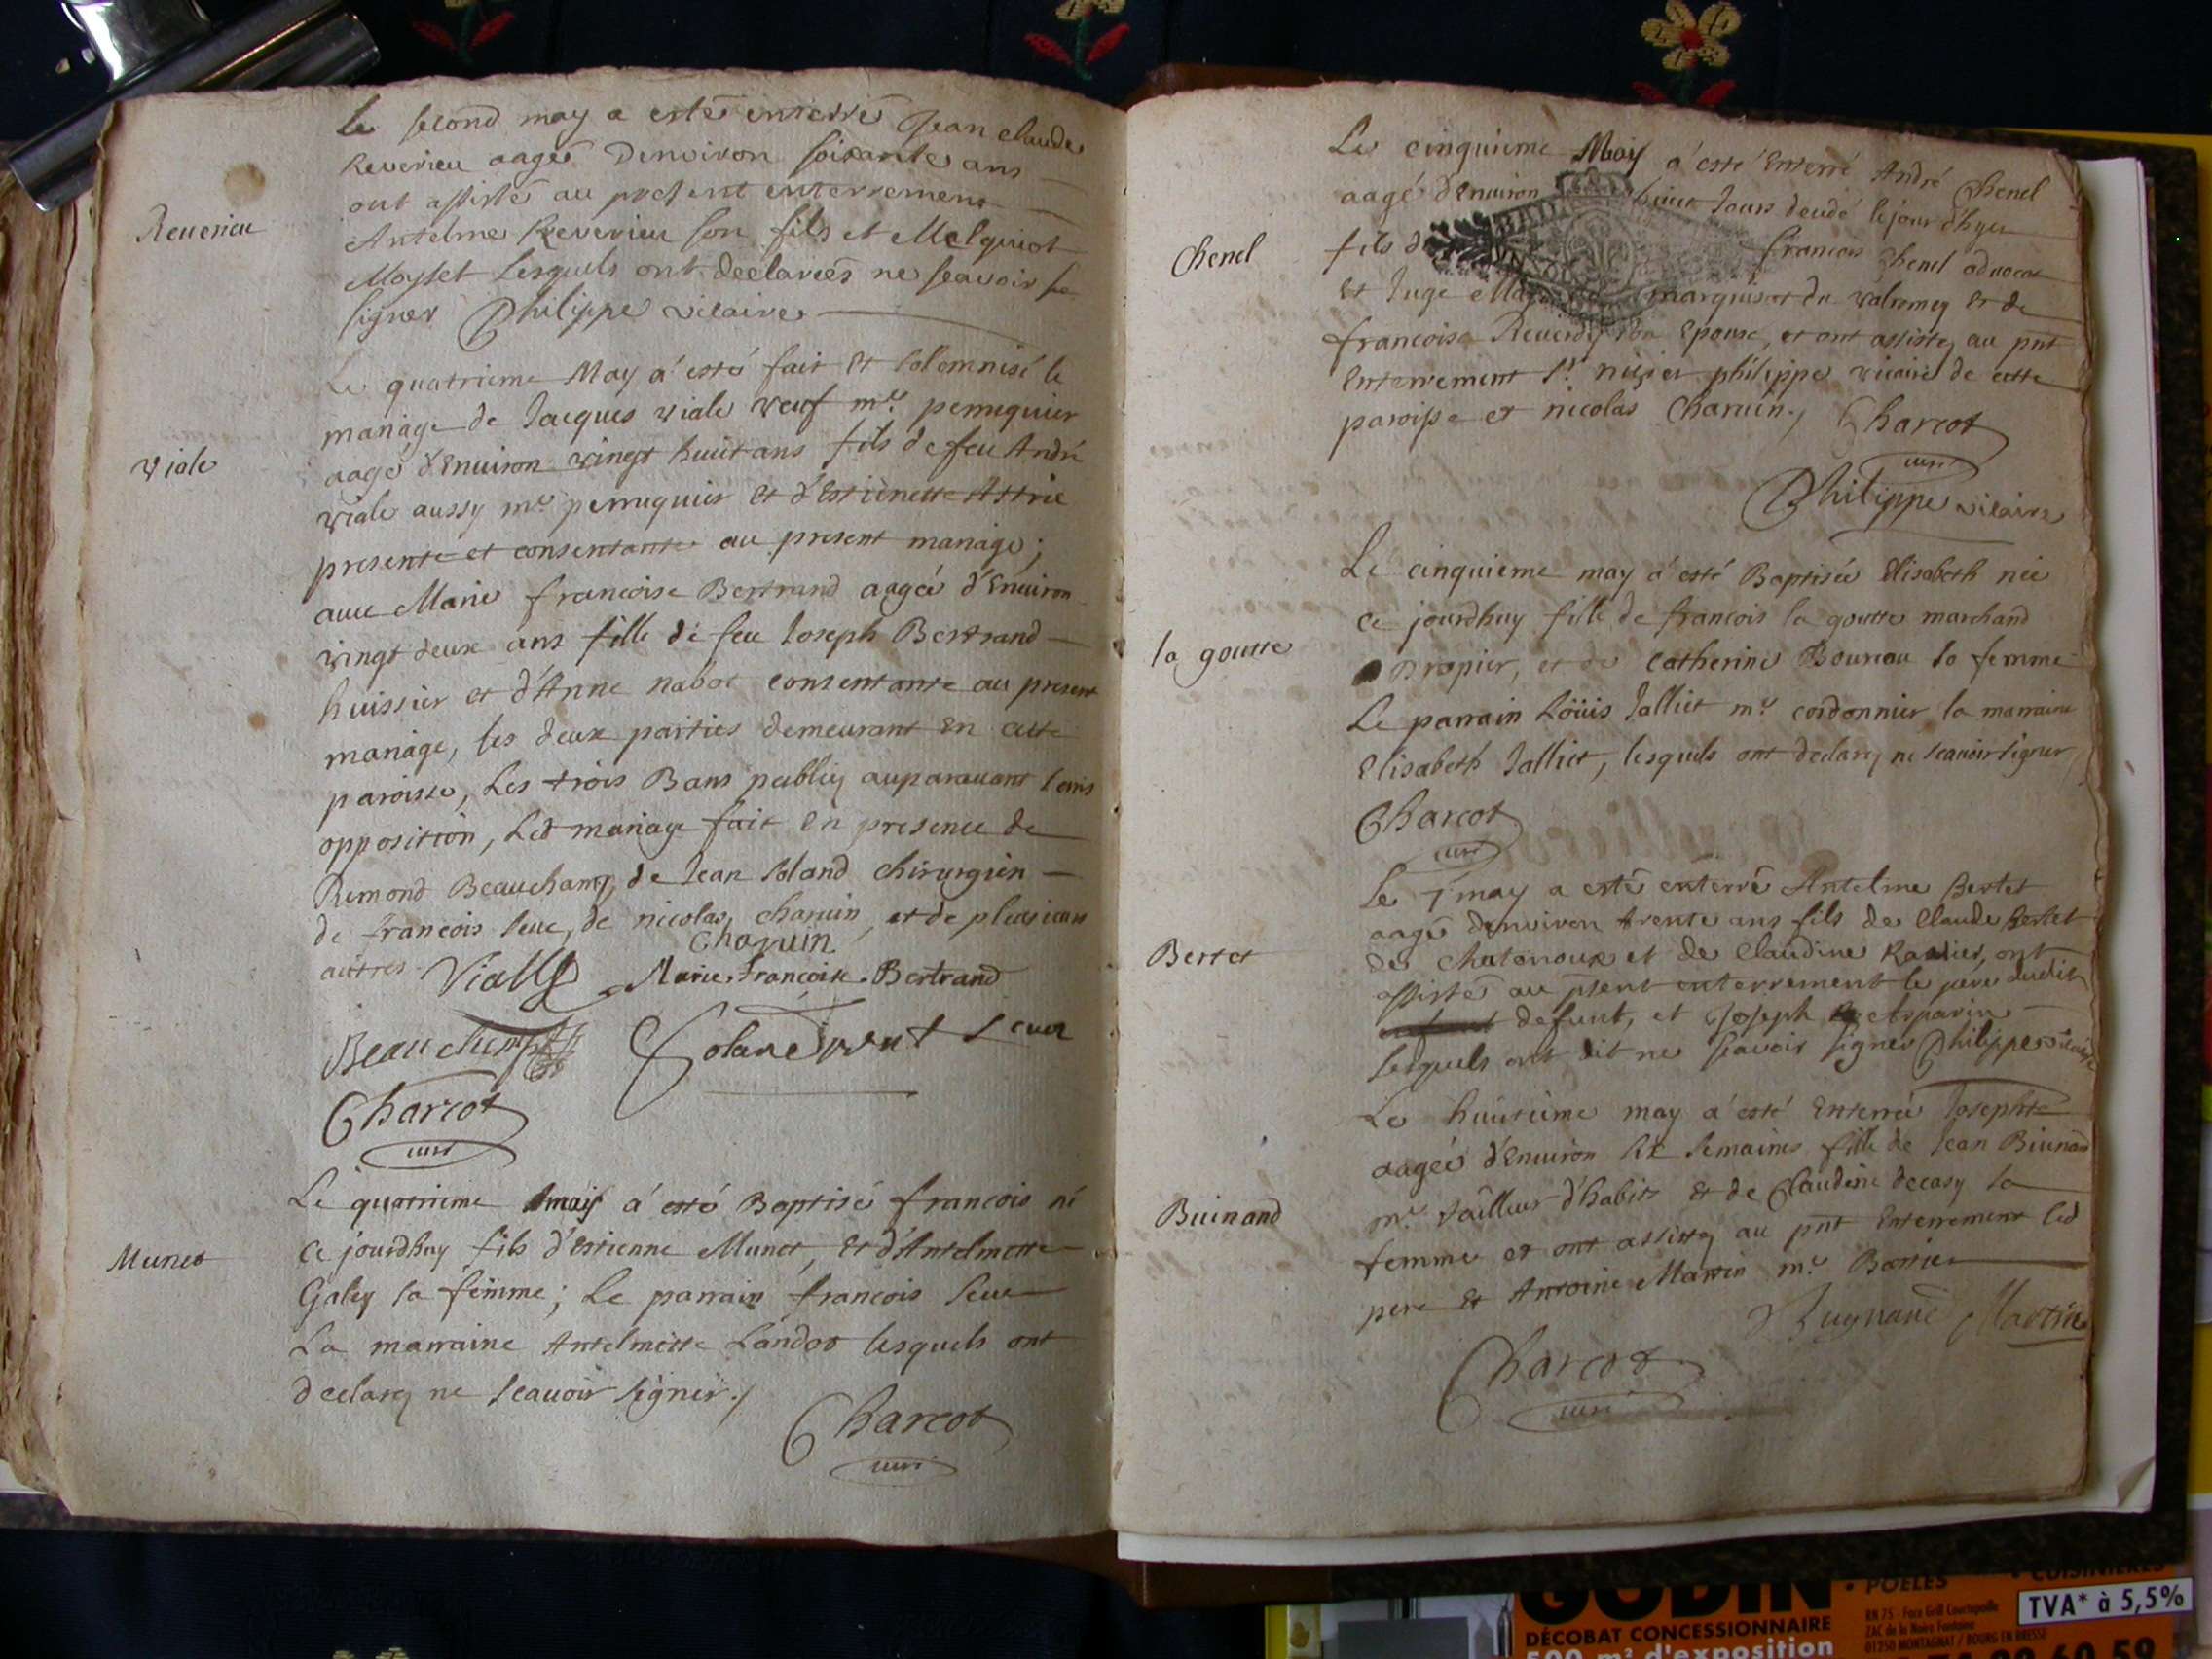 Le second may a esté enterré Jean Claude
Reverieu aagé denviron soixante ans
ont assisté au present enterrement
Antelme Reverieu son fils et Melquiot
Moysset lesquels ont declarés ne seavoir
signer Philippe vicaire
Reuerieu
Le quatrieme May a' esté fait et solemnisé le
mariage de Jacques viale veuf me. perruquier
aagé d'enuiron vingt huit ans fils de feu André
viale aussy me. perruquier et d'Estienette Astrie
presente et consentante au present mariage;
auec Marie francoise Bertrand aagée d'enuiron
vingt deux ans fille de feu Joseph Bertrand
huissier et d'Anne nabot consentante au present
mariage, les deux parties demeurant en cette
paroisse, Les trois Bans publiez auparauant sans
opposition, Led mariage fait en presence de
Remond Beauchamp, de Jean soland chirurgien
de francois seue, de nicolas charuin, et de plusieurs
autres
viale
Charuin
Vialle Marie Francoise Bertrand
Beauchamp Soland Seue
Charcot
curé
Le quatrieme may a' esté Baptisé francois né
ce jourdhuy fils d'estienne Munet, et d'Antelmette
Galey sa femme; Le parrain francois seue
La marraine Antelmette Landot lesquels ont
declarez ne scauoir signer./
Munet
Charcot
curé
Le cinquieme May a' esté enterré André Chenel
aagé d'enuiron huict Jours decedé le jour d'hyer
fils d francois Chenel aduocat
et Juge marquisat du valromey et de
francoise Reuerdy son Epouse, et ont assistez au pnt
enterrement Sr. nizier philippe vicaire de cette
paroisse et nicolas Charuin./ Charcot
curé
Chenel
Philippe vicaire
Le cinquieme may a' esté Baptisée Elisabeth née
ce jourdhuy fille de francois la goutte marchand
Drapier, et de Catherine Boureau sa femme
Le parrain Loüis Jalliet me. cordonnier la marraine
Elisabeth Jalliet, lesquels ont declarez ne scauoir signer,
la goutte
Charcot
curé
Le 7e may a esté enterré Antelme Bertet
aagé denviron trente ans fils de Claude Bertet
de Chatonoux et de Claudine Ravier, ont
assisté au psent enterrement le pere dudit
defunt, et Joseph Arparin
lesquels ont dit ne seavoir signer Philippe vicaire
Bertet
Le huictieme may a' esté Enterrée Josephte
aagée d'enuiron six semaines fille de Jean Buinand
me. tailleur d'habits et de Claudine decasy sa
femme et ont assistez au pnt enterrement led
pere et Antoine Martin me. Barrier
Buinand
Buynand Martin
Charcot
curé
GODIN
DÉCOBAT CONCESSIONNAIRE
500 m² d'exposition
• POÊLES
• CUISINIÈRES
RN 75 - Face Grill Courtepaille
ZAC de la Noire Fontaine
01250 MONTAGNAT / BOURG EN BRESSE
TVA* à 5,5%